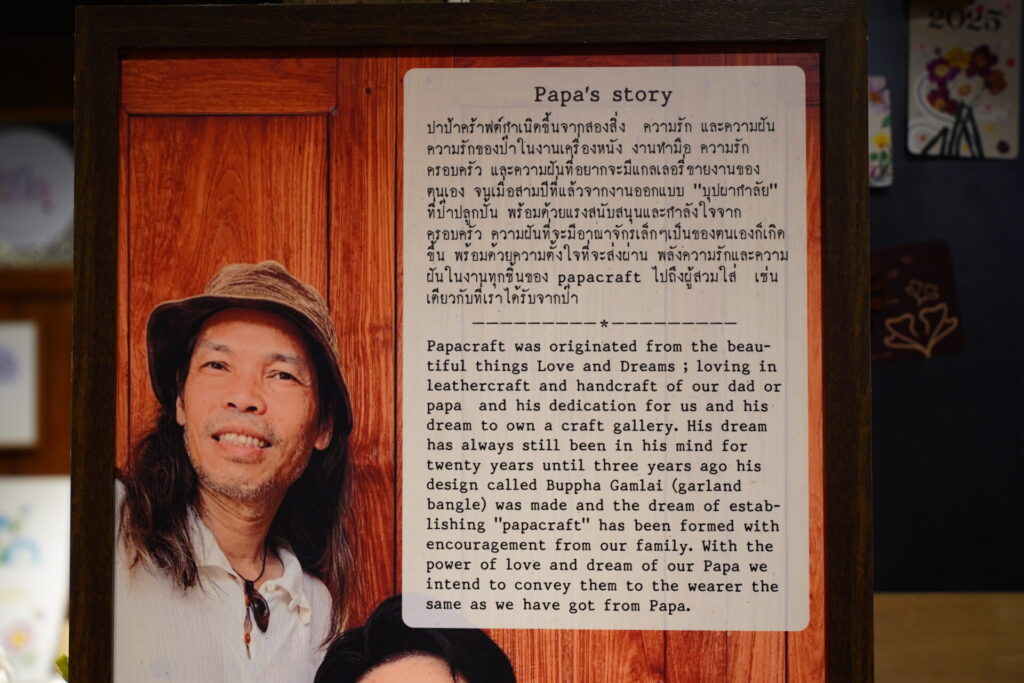 2025
Papa's story
ปาป้าคร้าฟต์กำเนิดขึ้นจากสองสิ่ง ความรัก และความฝัน
ความรักของป๊าในงานเครื่องหนัง งานทำมือ ความรัก
ครอบครัว และความฝันที่อยากจะมีแกลเลอรี่ขายงานของ
ตนเอง จนเมื่อสามปีที่แล้วจากงานออกแบบ "บุปผากำลัย"
ที่ป๊าปลุกปั้น พร้อมด้วยแรงสนับสนุนและกำลังใจจาก
ครอบครัว ความฝันที่จะมีอาณาจักรเล็กๆเป็นของตนเองก็เกิด
ขึ้น พร้อมด้วยความตั้งใจที่จะส่งผ่าน พลังความรักและความ
ฝันในงานทุกชิ้นของ papacraft ไปถึงผู้สวมใส่ เช่น
เดียวกับที่เราได้รับจากป๊า
Papacraft was originated from the beau-
tiful things Love and Dreams ; loving in
leathercraft and handcraft of our dad or
papa and his dedication for us and his
dream to own a craft gallery. His dream
has always still been in his mind for
twenty years until three years ago his
design called Buppha Gamlai (garland
bangle) was made and the dream of estab-
lishing "papacraft" has been formed with
encouragement from our family. With the
power of love and dream of our Papa we
intend to convey them to the wearer the
same as we have got from Papa.